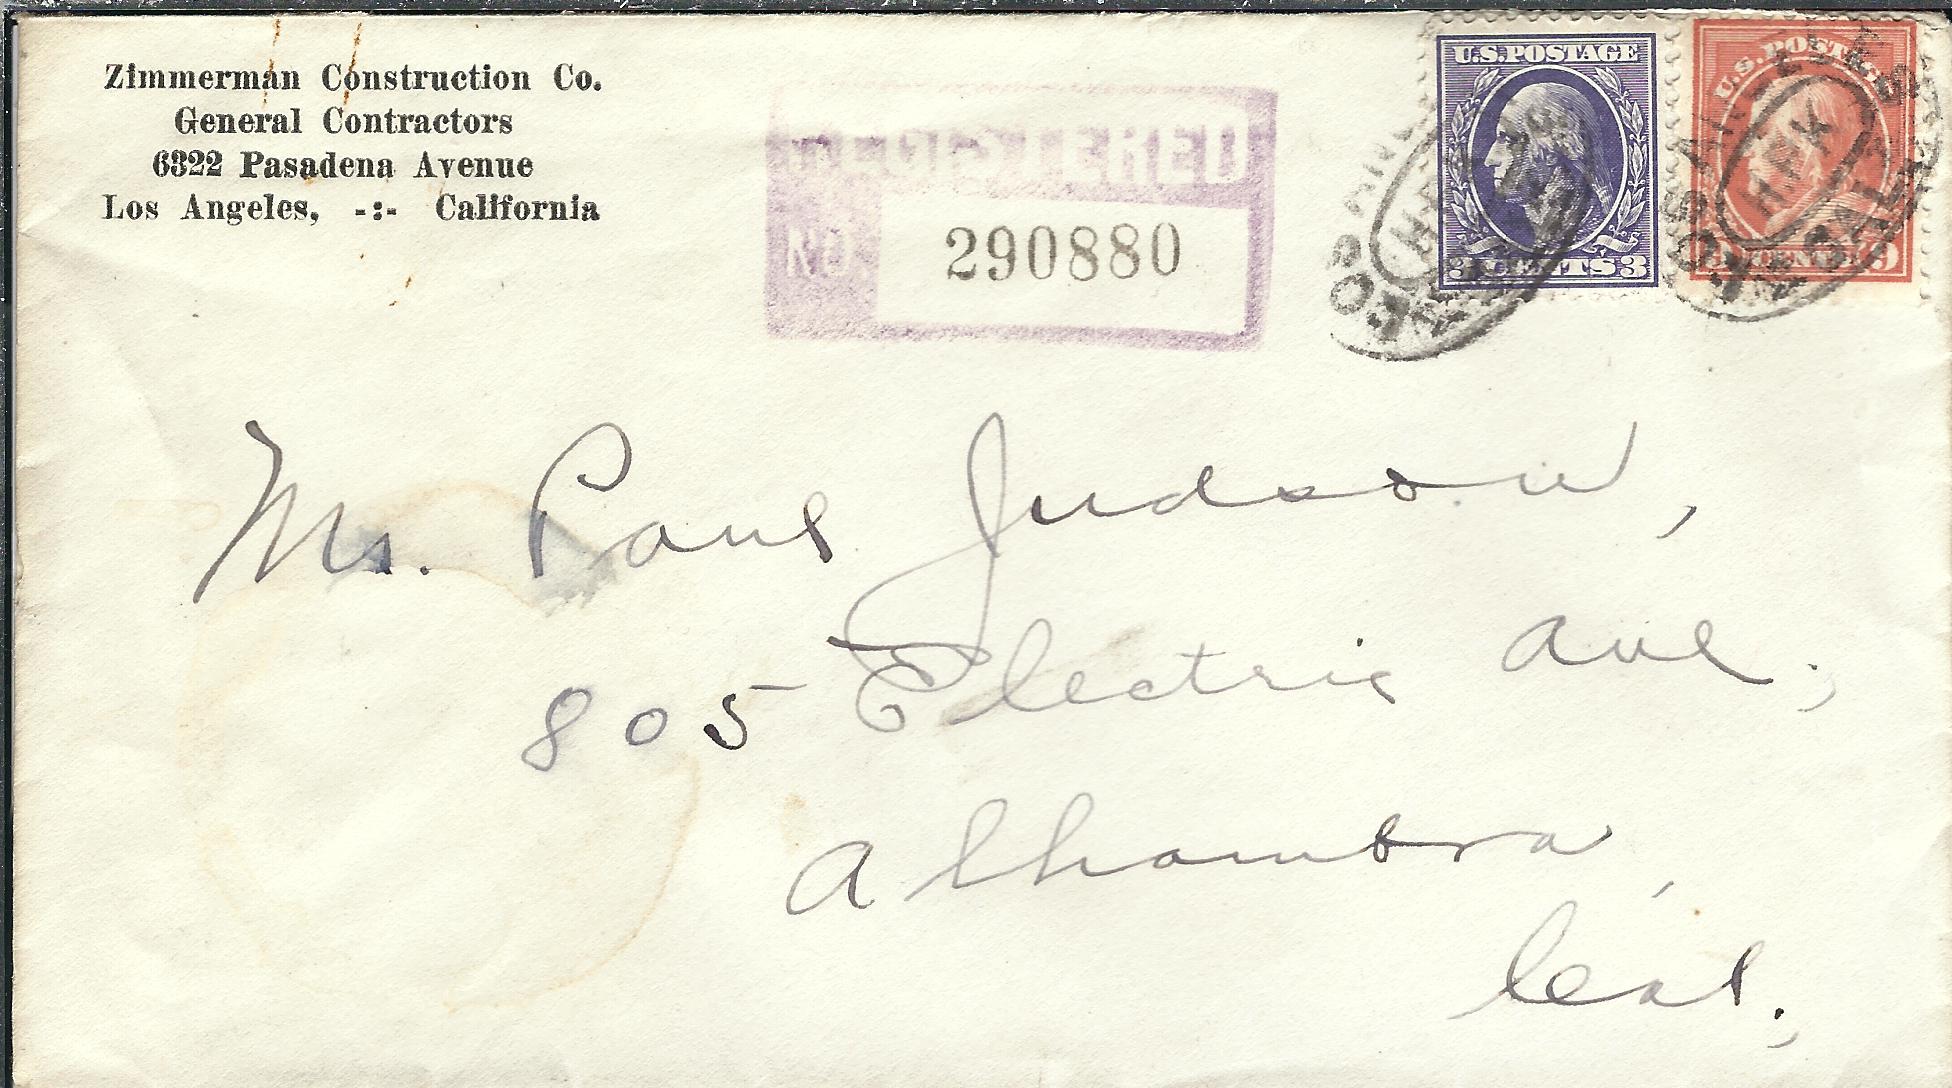 Zimmerman Construction Co.
General Contractors
6322 Pasadena Avenue
Los Angeles, -:- California
REGISTERED
NO. 290880
U.S. POSTAGE
3 CENTS 3
U.S. POSTAGE
9 CENTS 9
LOS ANGELES
H.P.K.
CAL.
Mr. Paul Judson,
805 Electric Ave.,
Alhambra,
Cal.,